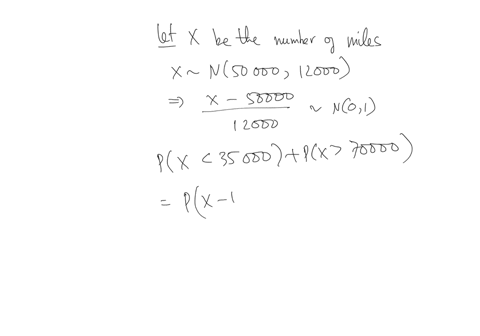 let X be the number of miles
X ~ N(50000, 12000)
⇒ X - 50000 / 12000 ~ N(0,1)
P(X < 35000) + P(X > 70000)
= P(X - 1